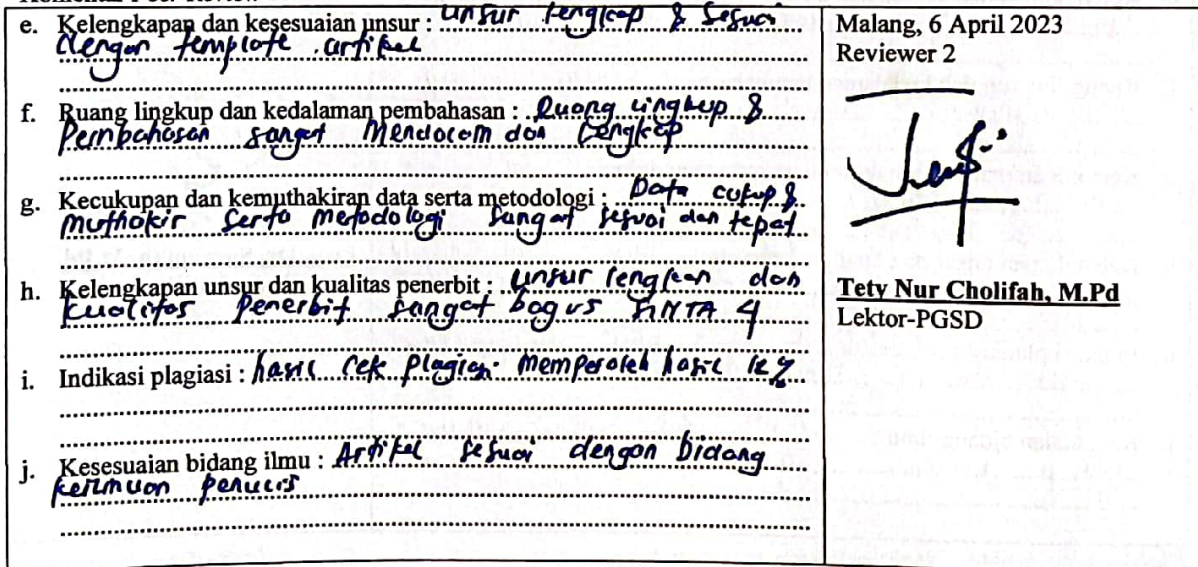 e. Kelengkapan dan kesesuaian unsur : unsur lengkap & sesuai
dengan template artikel
f. Ruang lingkup dan kedalaman pembahasan : Ruang lingkup &
Pembahasan sangat Mendalam dan Lengkap
g. Kecukupan dan kemuthakiran data serta metodologi : Data cukup &
Muthakir serta metodologi sangat sesuai dan tepat
h. Kelengkapan unsur dan kualitas penerbit : unsur lengkap dan
kualitas Penerbit sangat bagus SINTA 4
i. Indikasi plagiasi : hasil cek plagiasi memperoleh hasil 12%
j. Kesesuaian bidang ilmu : Artikel sesuai dengan bidang
keilmuan penulis
Malang, 6 April 2023
Reviewer 2
Tety Nur Cholifah, M.Pd
Lektor-PGSD